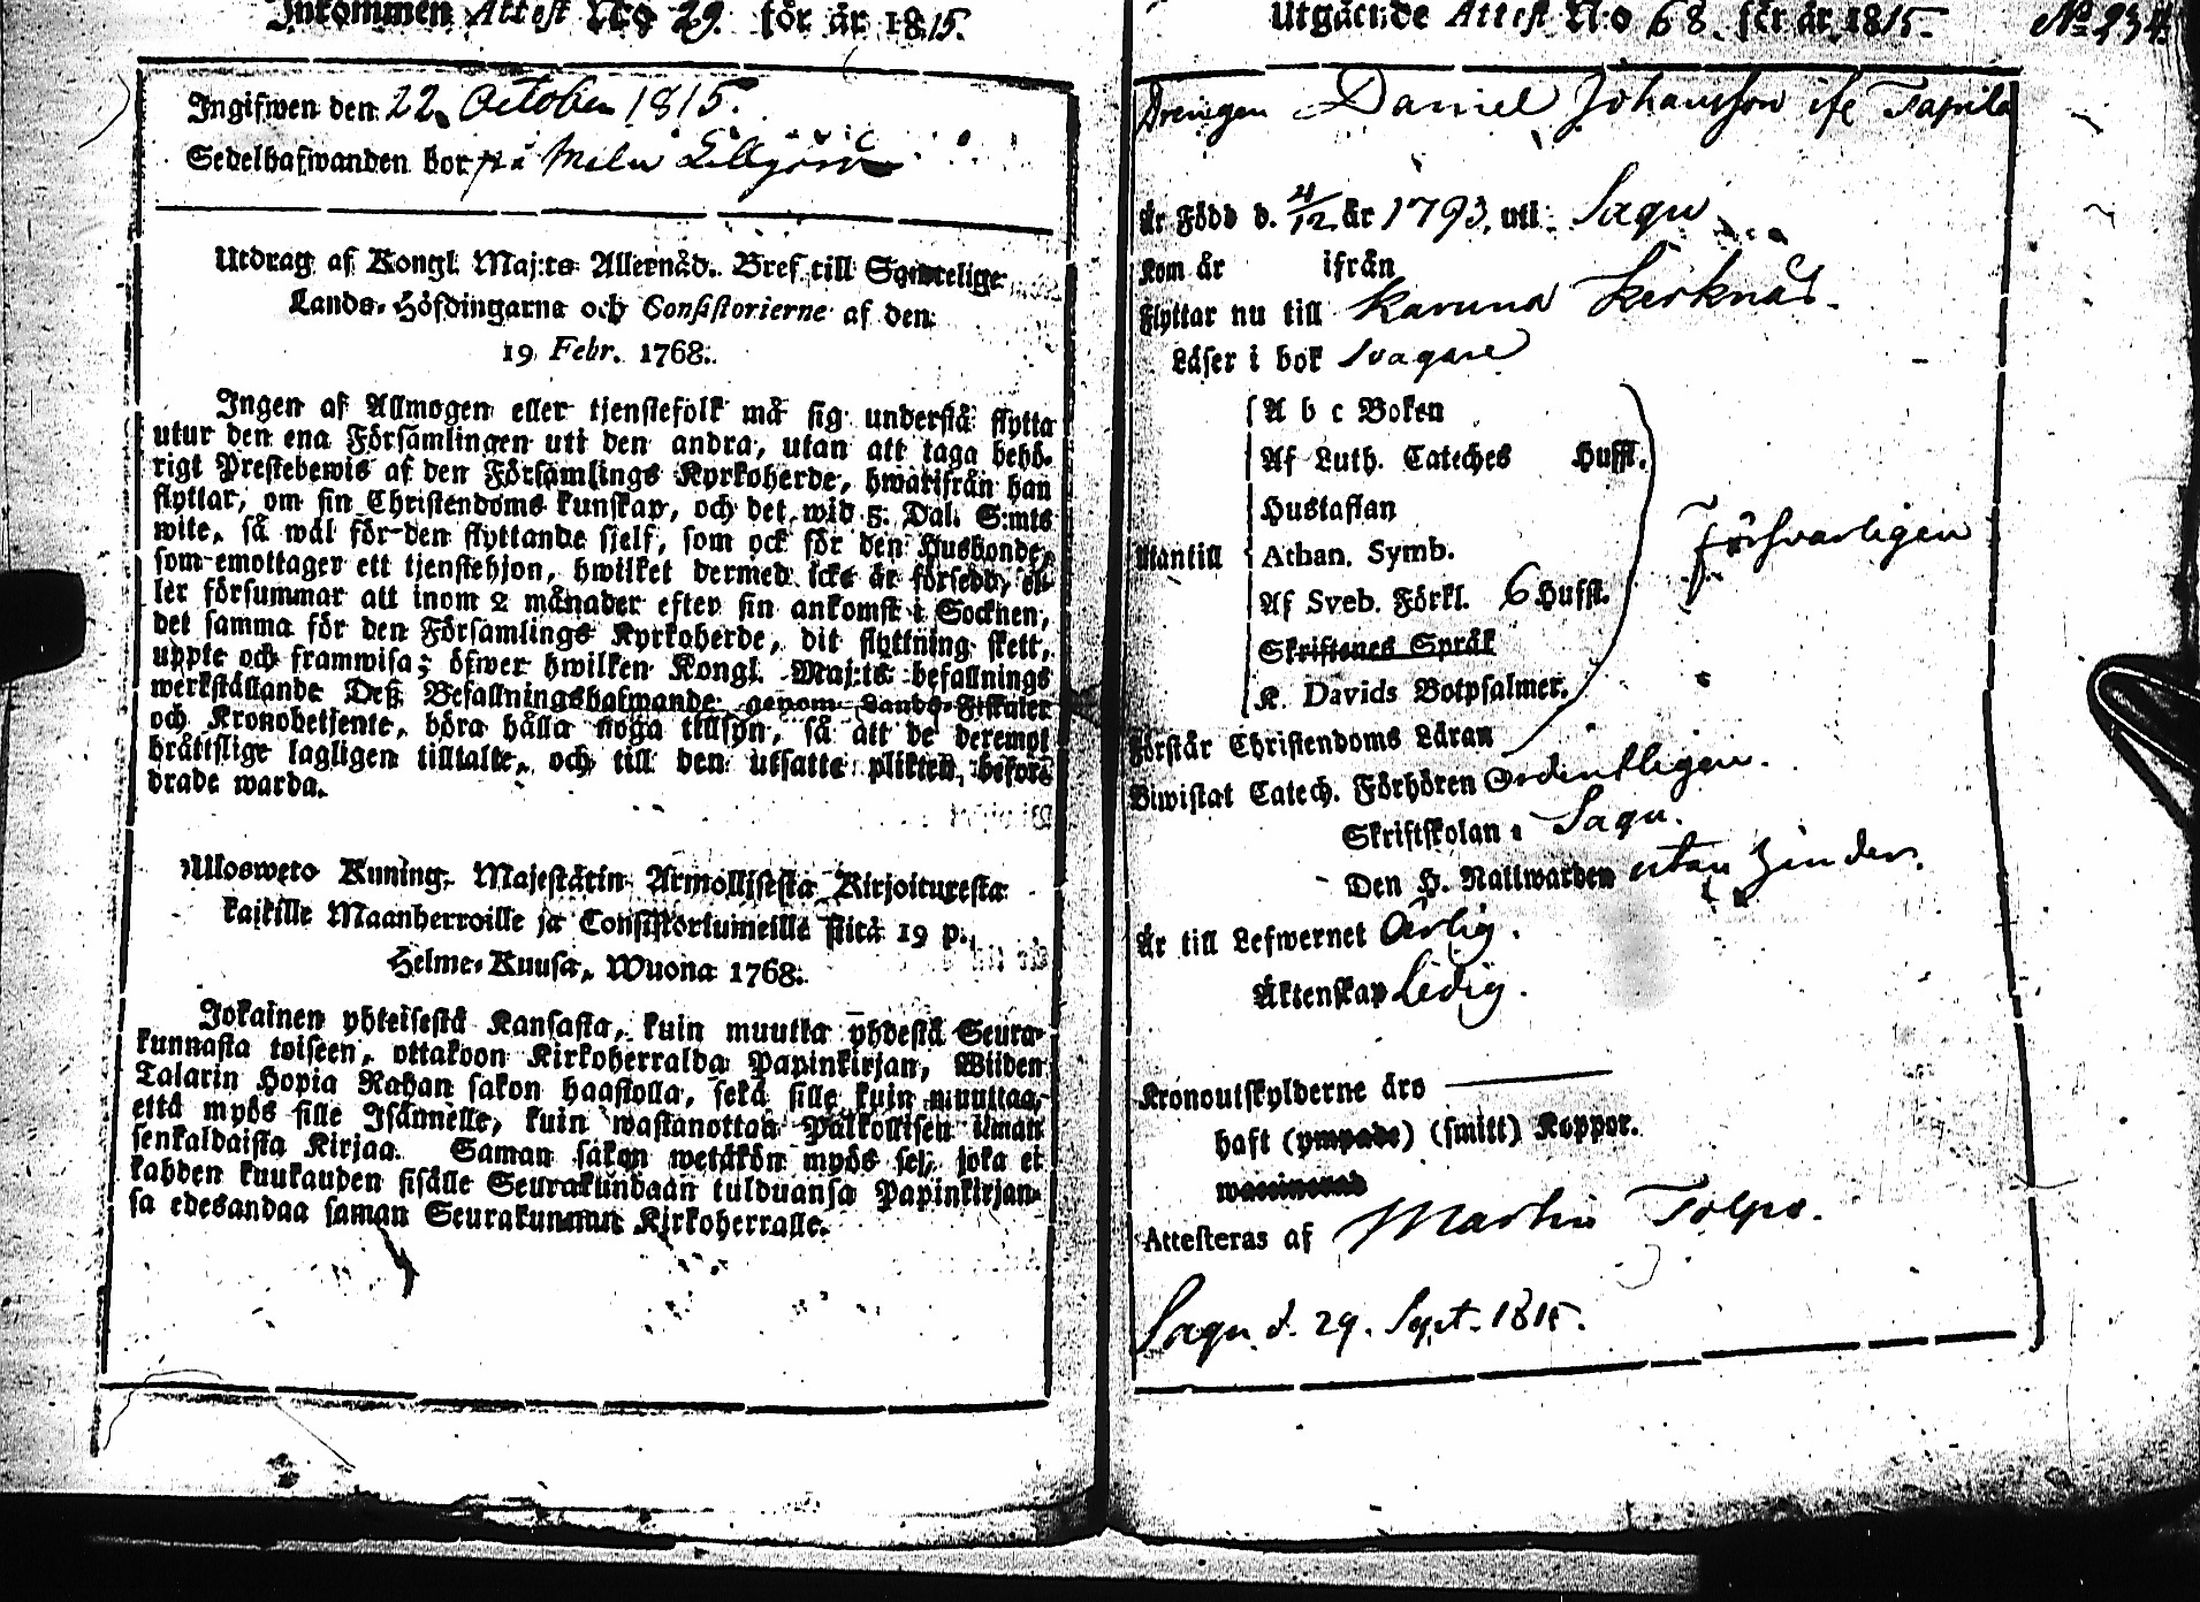 Inkommen Attest N:o 29. för år 1815.
Ingifwen den 22. October 1815.
Sedelhafwanden bor på
Utdrag af Kongl. Maj:ts Allernåd. Bref till Samtelige
Lands-Höfdingarne och Consistorierne af den
19 Febr. 1768.
Ingen af Allmogen eller tjenstefolk må sig understå flytta
utur den ena Församlingen uti den andra, utan att taga behö-
rigt Prestebewis af den Församlings Kyrkoherde, hwarifrån han
flyttar, om sin Christendoms kunskap, och det wid 5. Dal. S:mts
wite, så wäl för den flyttande sjelf, som ock för den Husbonde,
som emottager ett tjenstehjon, hwilket dermed icke är försedd, el-
ler försummar att inom 2 månader efter sin ankomst i Socknen,
det samma för den Församlings Kyrkoherde, dit flyttning skett,
uppte och framwisa; öfwer hwilken Kongl. Maj:ts befallnings
werkställande Deß Befallningshafwande genom Lands-Fiskaler
och Kronobetjente, böra hålla noga tillsyn, så att de deremot
bråttslige lagligen tilltalte, och till den utsatte plikten, beford
drade warda.
Ulosweto Kuning. Majestätin Armollisesta Kirjoituxesta
kaikille Maanherroille ja Consistoriumeille siitä 19 p.
Helme-Kuusa, Wuona 1768.
Jokainen yhteisestä Kansasta, kuin muutta yhdestä Seura-
kunnasta toiseen, ottakoon Kirkoherralda Papinkirjan, Wiiden
Talarin Hopia Rahan sakon haastolla, sekä sille kuin muuttaa,
että myös sille Isännelle, kuin wastanottaa Palkollisen ilman
senkaldaista Kirjaa. Saman sakon wetäkön myös se, joka ei
kahden kuukauden sisälle Seurakundaan tulduansa Papinkirjan-
sa edesandaa saman Seurakunnan Kirkoherralle.
Utgående Attest N:o 68. för år 1815. No 234.
Drengen Daniel Johansson ifr Tapila
Är Född d. 4/12 år 1793. uti Sagu
Kom år ifrån
Flyttar nu till Karuna Kirknäs.
Läser i bok svagare
A b c Boken
Af Luth. Cateches Hufst.
Hustaflan
Utantill Athan. Symb. Försvarligen
Af Sveb. Förkl. 6 Hufst.
Skriftenes Språk
K. Davids Botpsalmer.
Förstår Christendoms Läran
Biwistat Catech. Förhören Ordentligen.
Skriftskolan i Sagu.
Den H. Nattwarden utan hinder.
Är till Lefwernet Ärlig.
Äktenskap Ledig.
Kronoutskylderne äro
haft (ympade) (smitt) Koppor.
waccinerad
Attesteras af Martin Tolpo.
Sagu d. 29. Sept. 1815.